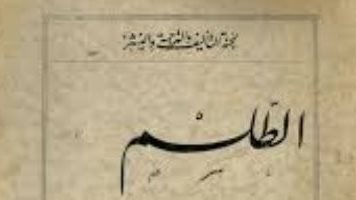 لجنة التأليف والترجمة والنشر
الطّلسْم